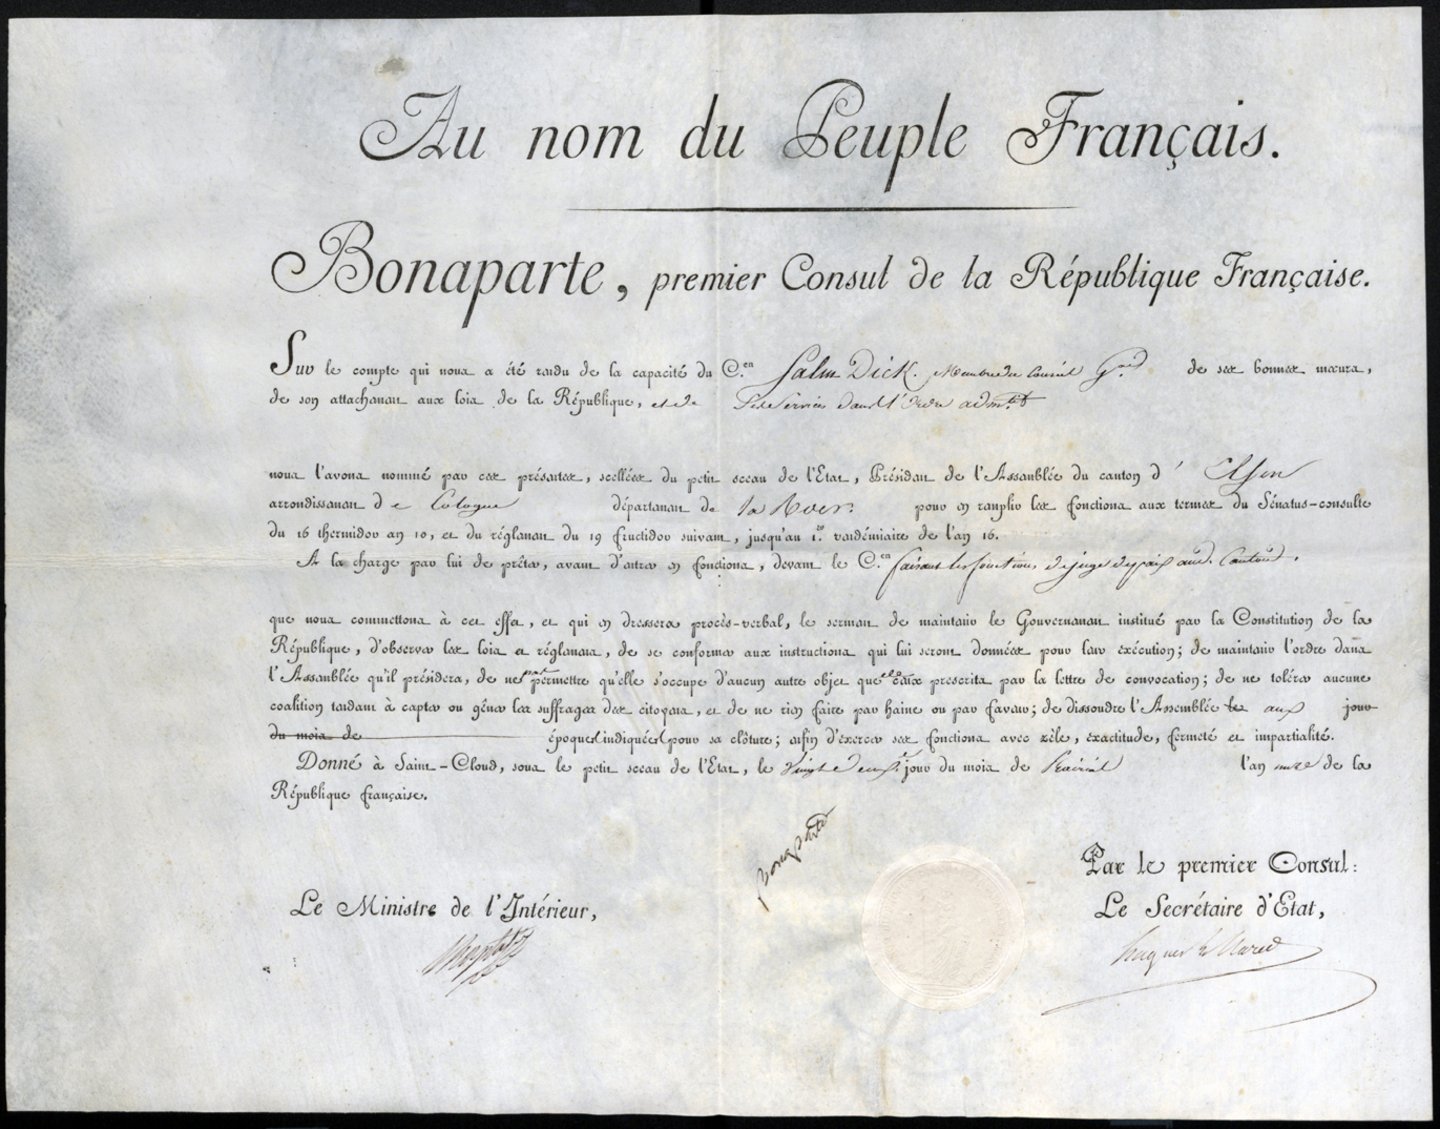 Au nom du Peuple Français.
Bonaparte, premier Consul de la République Française.
Sur le compte qui nous a été rendu de la capacité du C.en Salm Dick. Membre du Conseil G.ral de ses bonnes mœurs,
de son attachement aux lois de la République, et de Ses Services dans l'Ordre admtif
nous l'avons nommé par ces présentes, scellées du petit sceau de l'Etat, Président de l'Assemblée du canton d' Elsen
arrondissement de Cologne département de la Roer. pour en remplir les fonctions aux termes du Sénatus-consulte
du 16 thermidor an 10, et du réglement du 19 fructidor suivant, jusqu'au 1.er vendémiaire de l'an 16.
A la charge par lui de prêter, avant d'entrer en fonctions, devant le C.en faisant les fonctions de juge de paix aud. Canton.
que nous commettons à cet effet, et qui en dressera procès-verbal, le serment de maintenir le Gouvernement institué par la Constitution de la
République, d'observer les lois et réglemens, de se conformer aux instructions qui lui seront données pour leur exécution; de maintenir l'ordre dans
l'Assemblée qu'il présidera, de ne pas permettre qu'elle s'occupe d'aucun autre objet que ceux prescrits par la lettre de convocation; de ne tolérer aucune
coalition tendant à capter ou gêner les suffrages des citoyens, et de ne rien faire par haine ou par faveur; de dissoudre l'Assemblée le aux jour
du mois de époques indiquées pour sa clôture; enfin d'exercer ses fonctions avec zèle, exactitude, fermeté et impartialité.
Donné à Saint-Cloud, sous le petit sceau de l'Etat, le Vingt deux.e jour du mois de Prairial l'an onze de la
République française.
Bonaparte
Par le premier Consul:
Le Ministre de l'Intérieur,
Le Secrétaire d'Etat,
Chaptal
Hugues B. Maret